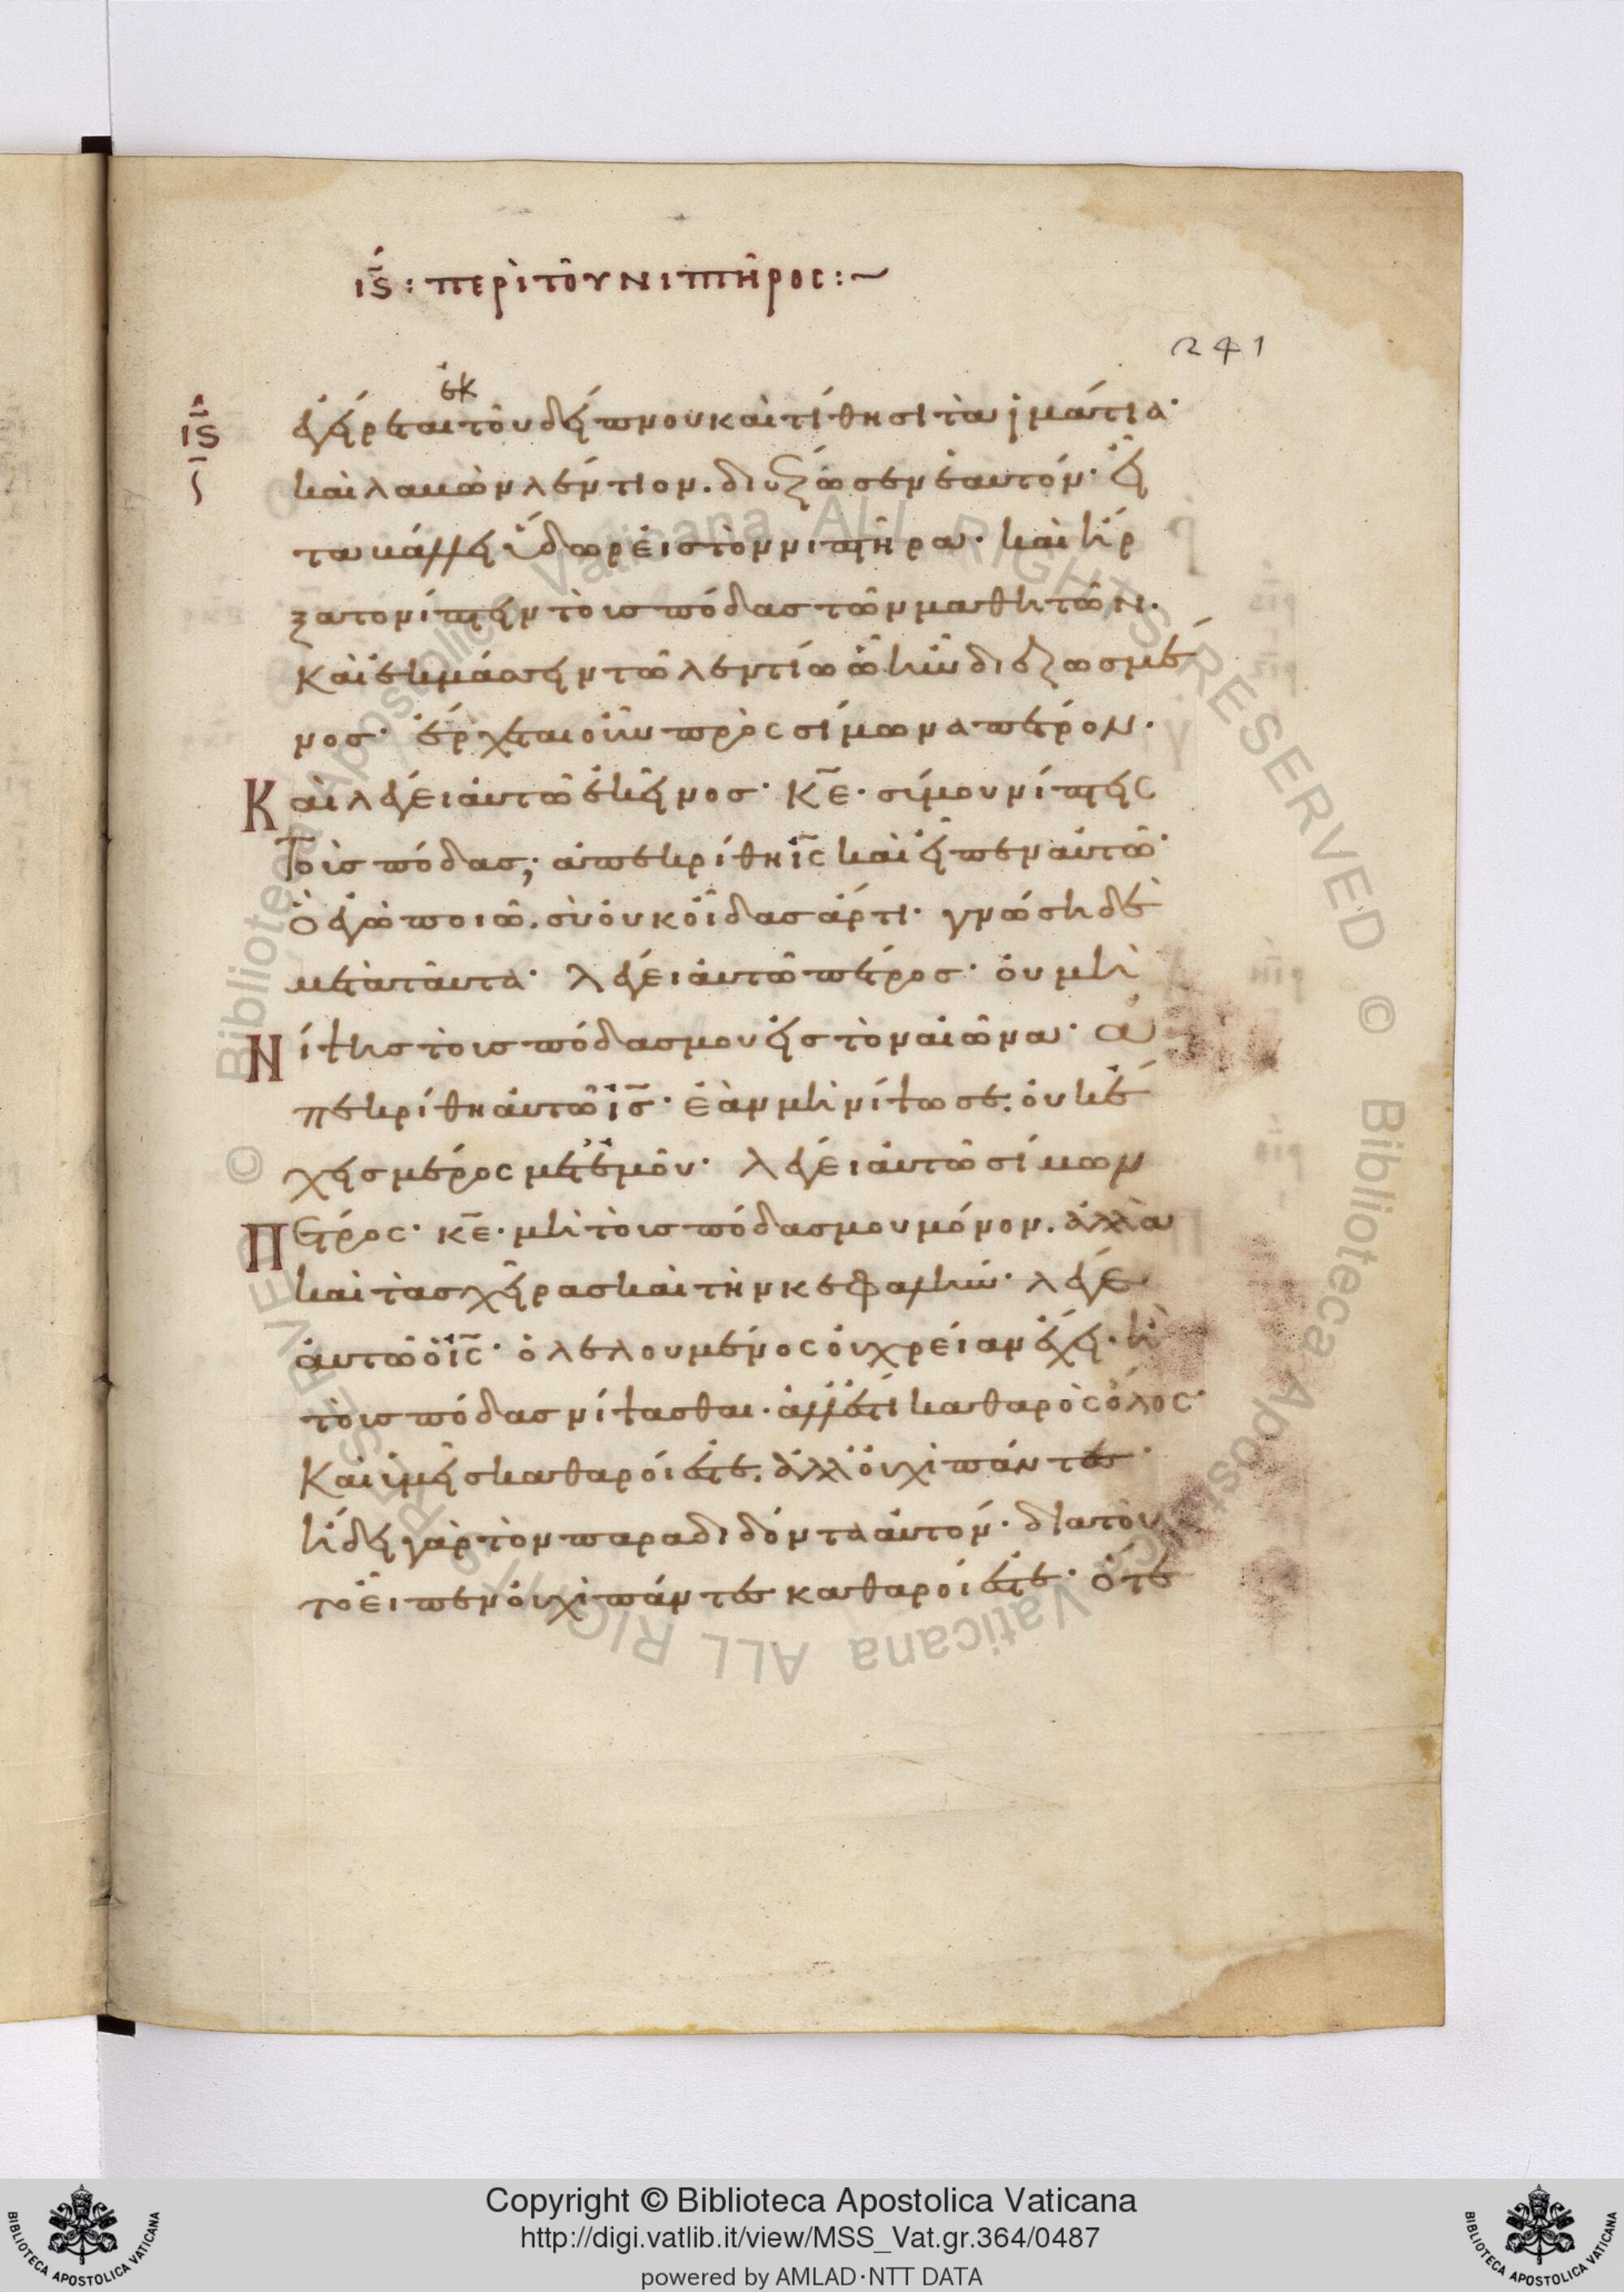 ιϛ: περὶ τοῦ νιπτῆρος:~
241
ἐκ
ιϛ
ἐγείρεται τοῦ δείπνου καὶ τίθησι τὰ ἱμάτια·
καὶ λαβὼν λέντιον. διέζωσεν ἑαυτόν· εἶ
τα βάλλει ὕδωρ εἰς τὸν νιπτῆρα· καὶ ἤρ
ξατο νίπτειν τοὺς πόδας τῶν μαθητῶν.
Καὶ ἐκμάσσειν τῶ λεντίω ὧ ἦν διεζωσμέ
νος· ἔρχεται οὖν πρὸς σίμωνα πέτρον.
Καὶ λέγει αὐτῶ ἐκεῖνος· κε̅· σύ μου νίπτεις
Τοὺς πόδας; ἀπεκρίθη ις̅ καὶ εἶπεν αὐτῶ·
Ὃ ἐγὼ ποιῶ. σὺ οὐκ οἶδας ἄρτι· γνώση δὲ
μετὰ ταῦτα· λέγει αὐτῶ πέτρος· οὐ μὴ
Νίψης τοὺς πόδας μου εἰς τὸν αἰῶνα· ἀ
πεκρίθη αὐτῶ ὁ ις̅· ἐὰν μὴ νίψω σε. οὐκ ἔ
χεις μέρος μετ' ἐμοῦ· λέγει αὐτῶ σίμων
Πέτρος· κε̅· μὴ τοὺς πόδας μου μόνον. ἀλλὰ
καὶ τὰς χεῖρας καὶ τὴν κεφαλήν· λέγει
αὐτῶ ὁ ις̅· ὁ λελουμένος οὐ χρείαν ἔχει. ἢ
τοὺς πόδας νίψασθαι. ἀλλ' ἔστι καθαρὸς ὅλος·
Καὶ ὑμεῖς καθαροί ἐστε. ἀλλ' οὐχὶ πάντες·
ἤδει γὰρ τὸν παραδιδόντα αὐτόν· διὰ τοῦ
το εἶπεν οὐχὶ πάντες καθαροί ἐστε· ὅτε
Copyright © Biblioteca Apostolica Vaticana
http://digi.vatlib.it/view/MSS_Vat.gr.364/0487
powered by AMLAD·NTT DATA
BIBLIOTECA APOSTOLICA VATICANA
BIBLIOTECA APOSTOLICA VATICANA
© Biblioteca Apostolica Vaticana ALL RIGHTS RESERVED
© Biblioteca Apostolica Vaticana ALL RIGHTS RESERVED